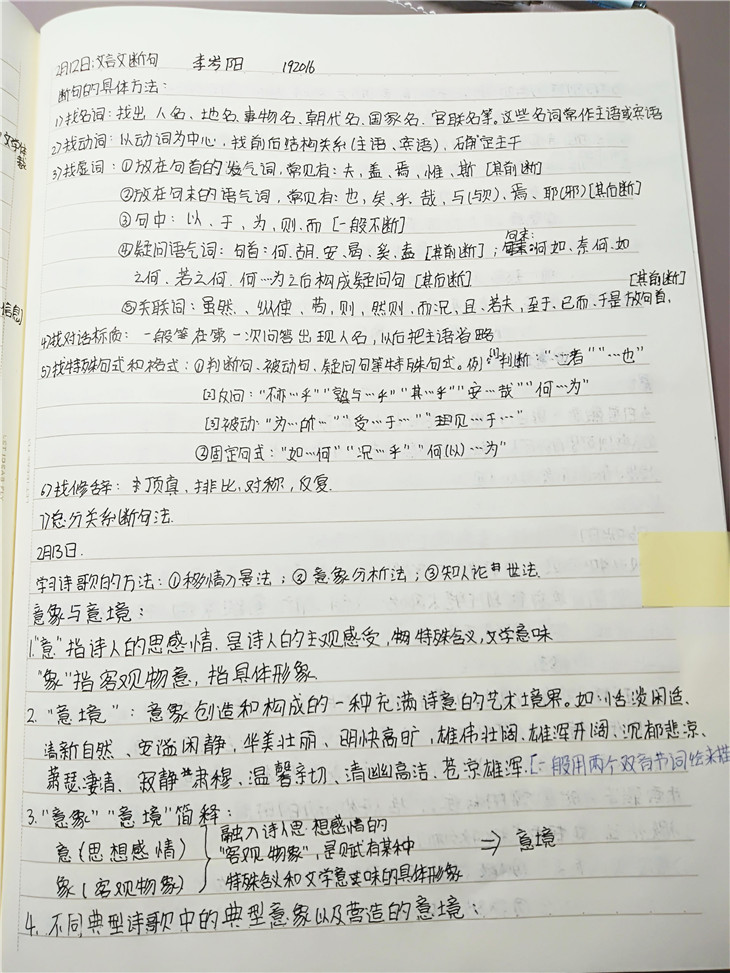 2月12日:文言文断句 李岑阳 192016
断句的具体方法:
1)找名词:找出人名、地名、事物名、朝代名、国家名、官职名等。这些名词常作主语或宾语
2)找动词:以动词为中心,找前后结构关系(主语、宾语),确定主干
3)找虚词:①放在句首的发气词,常见有:夫,盖、焉、惟、斯[其前断]
②放在句末的语气词,常见有:也,矣、乎、哉,与(欤)、焉、耶(邪)[其后断]
③句中:以、于、为,则、而[一般不断]
④疑问语气词:句首:何、胡、安、曷、奚、盍[其前断];句末:何如、奈何、如
之何、若之何、何…为之后构成疑问句[其后断]
⑤关联词:虽然、纵使、苟,则,然则、而况,且、若夫,至于、已而、于是放句首。[其前断]
4)找对话标质:一般等在第一次问答出现人名,以后把主语省略
5)找特殊句式和格式:①判断句、被动句、疑问句等特殊句式。例:[1]判断:"…者""…也"
[2]反问:"不亦…乎""孰与…乎""其…乎""安…哉""何…为"
[3]被动:"为…所…""受…于…""见…于…"
②固定句式:"如…何""况…乎""何(以)…为"
6)找修辞:顶真、排比,对称,反复.
7)总分关系断句法.
2月13日.
学习诗歌的方法:①移情入景法;②意象分析法;③知人论世法.
意象与意境:
1."意"指诗人的思感情.是诗人的主观感受,特殊含义,文学意味
"象"指客观物意,指具体形象
2."意境":意象创造和构成的一种充满诗意的艺术境界。如:恬淡闲适、
清新自然、安谧闲静,华美壮丽、明快高旷,雄伟壮阔、雄浑开阔、沉郁悲凉、
萧瑟凄清、寂静肃穆、温馨亲切、清幽高洁、苍凉雄浑.[一般用两个双音节词
3."意象""意境"简释:
意(思想感情) 融入诗人思想感情的
"客观物象",是赋有某种 ⇒意境
象(客观物象) 特殊含义和文学意味的具体形象
4.不同典型诗歌中的典型意象以及营造的意境:
信息]